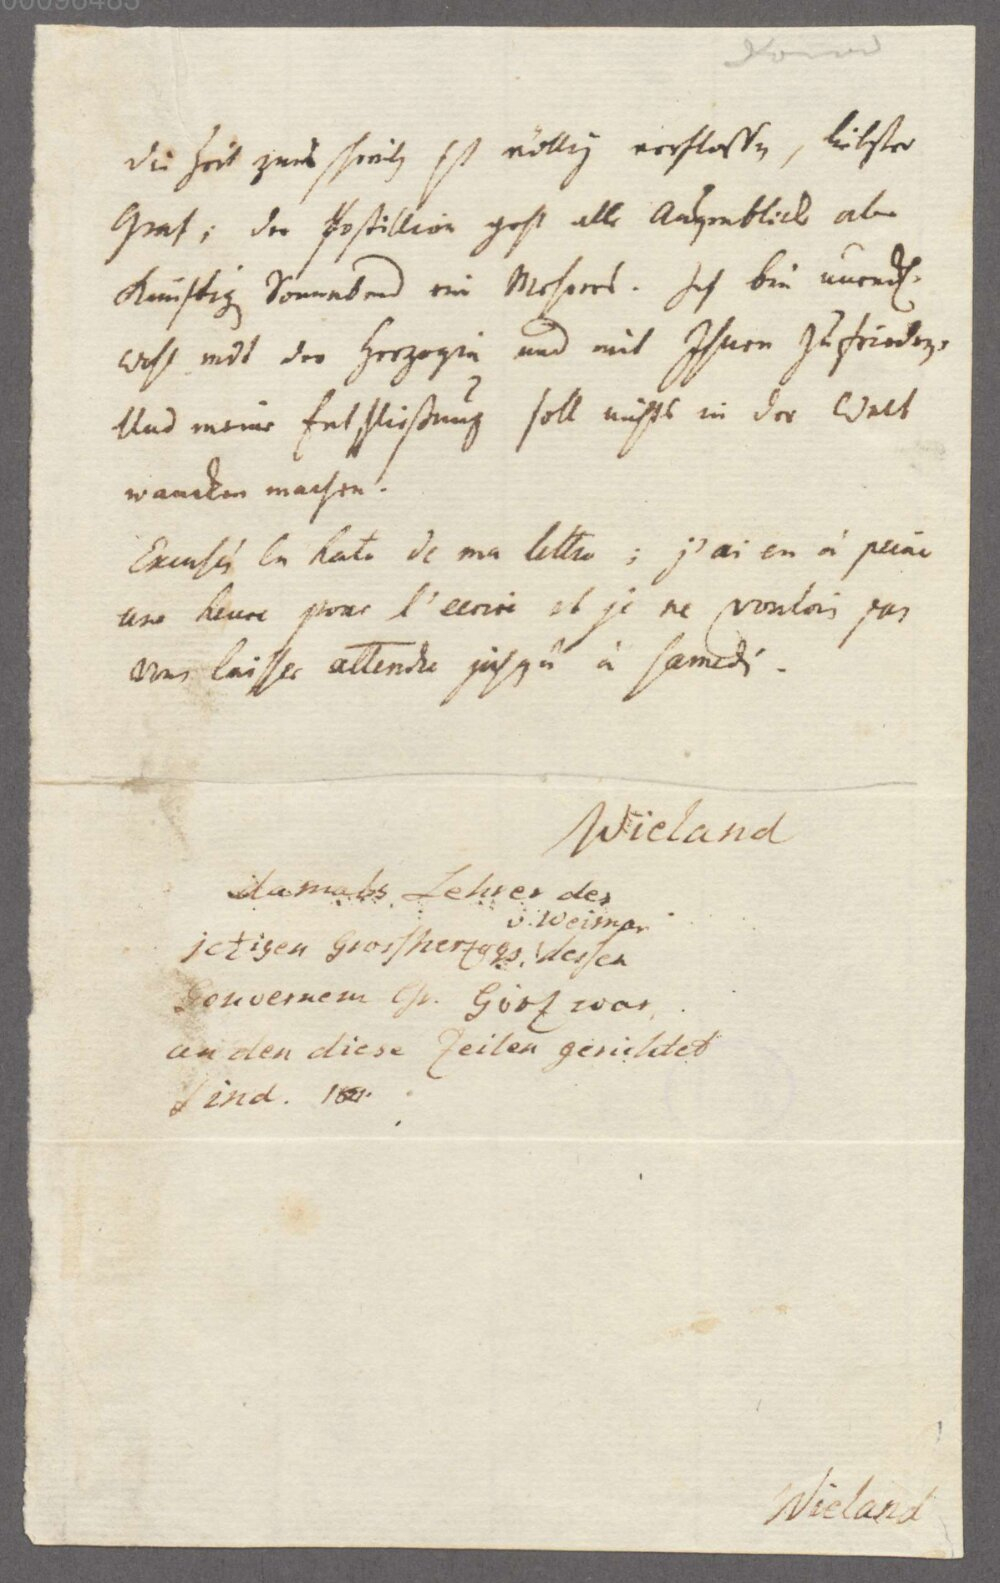 00096485
die Zeit zum schreiben ist völlig verflossen, liebster
Graf; der Postillion geht alle Augenblick ab.
Künftig Sonnabend ein Mehrers. Ich bin unendl.
wohl mit der Herzogin und mit Ihnen zufrieden.
Und meine Entschließung soll nichts in der Welt
wancken machen.
Excusés la hate de ma lettre ; j'ai eu à peine
une heure pour l'ecrire et je ne voulois pas
vous laisser attendre jusqu'à samedi.
Wieland
damals Lehrer des
v. Weimar
jetzigen Grosherzogs, dessen
Gouverneur Gr. Görz war,
an den diese Zeilen gerichtet
sind.
Wieland